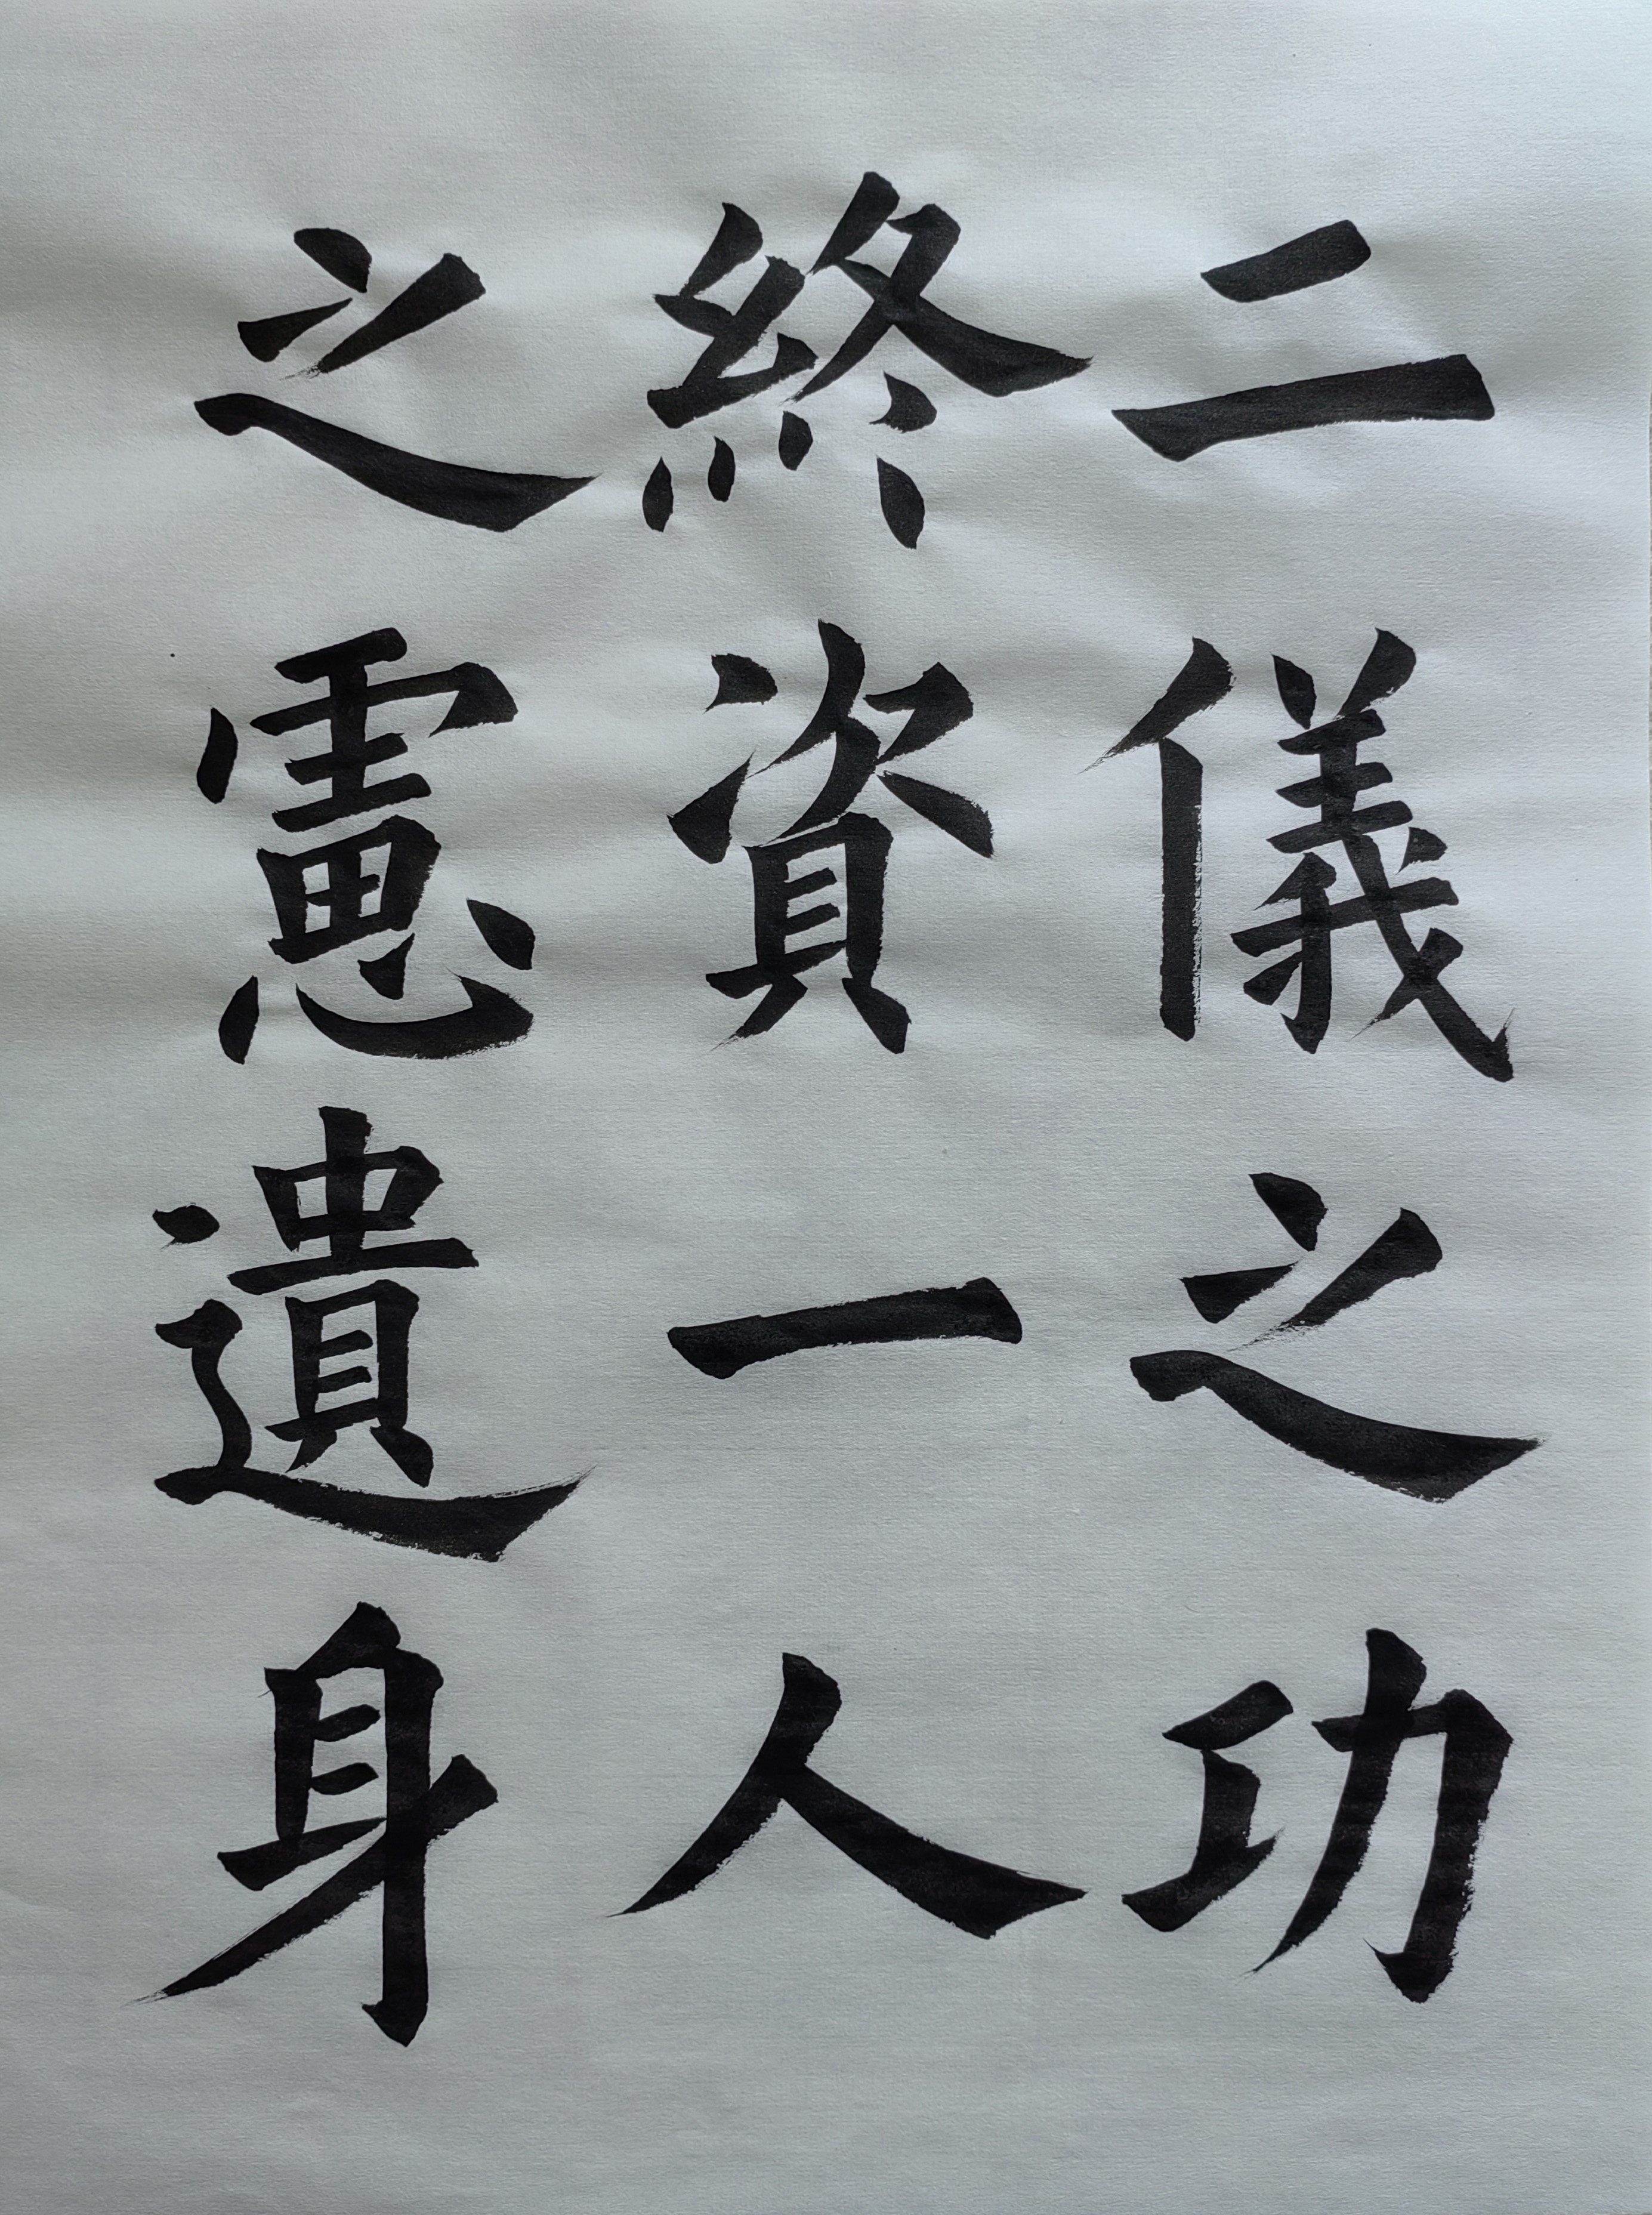 二儀之功
終資一人
之慮遺身